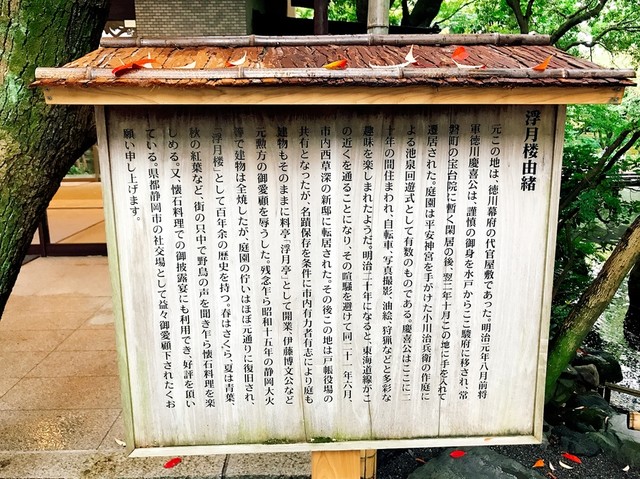 浮月楼由緒
元この地は、徳川幕府の代官屋敷であった。明治元年八月前将
軍徳川慶喜公は、謹慎の御身を水戸からここ駿府に移され、常
磐町の宝台院に暫く閑居の後、翌二年十月この地に手を入れて
遷居された。庭園は平安神宮を手がけた小川治兵衛の作庭に
よる池泉回遊式として有数のものである。慶喜公はここに二
十年の間住まわれ、自転車、写真撮影、油絵、狩猟などと多彩な
趣味を楽しまれたようだ。明治二十年になると、東海道線がこ
の近くを通ることになり、その喧騒を避けて同二十一年六月、
市内西草深の新邸に転居された。その後この地は戸帳役場の
共有となったが、名蹟保存を条件に市内有力者有志により庭も
建物もそのままに料亭「浮月亭」として開業、伊藤博文公など
元勲方の御愛顧を辱うした。残念乍ら昭和十五年の静岡大火
等で建物は全焼したが、庭園の佇いはほぼ元通りに復旧され、
「浮月楼」として百年余の歴史を持つ。春はさくら、夏は青葉、
秋の紅葉など、街の只中で野鳥の声を聞き乍ら懐石料理を楽
しめる。又、懐石料理での御披露宴にも利用でき、好評を頂い
ている。県都静岡市の社交場として益々御愛顧下されたくお
願い申し上げます。